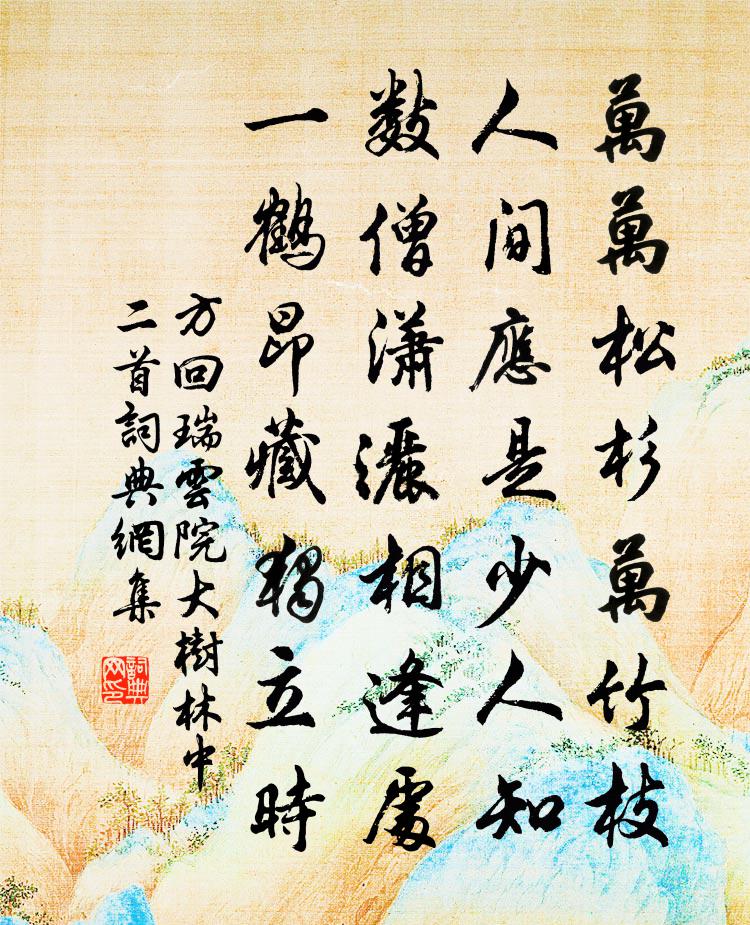 萬萬松杉萬竹枝
人間應是少人知
數僧瀟灑相逢處
一鶴昂藏獨立時
方回瑞雲院大樹林中
二首詞典網集
詞典
网印